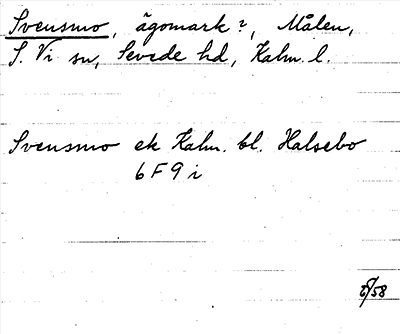 Svensmo, ägomark?, Målen,
S. Vi sn, Sevede hd, Kalm. l.
Svensmo ek Kalm. bl. Halsebo
6 F 9 i